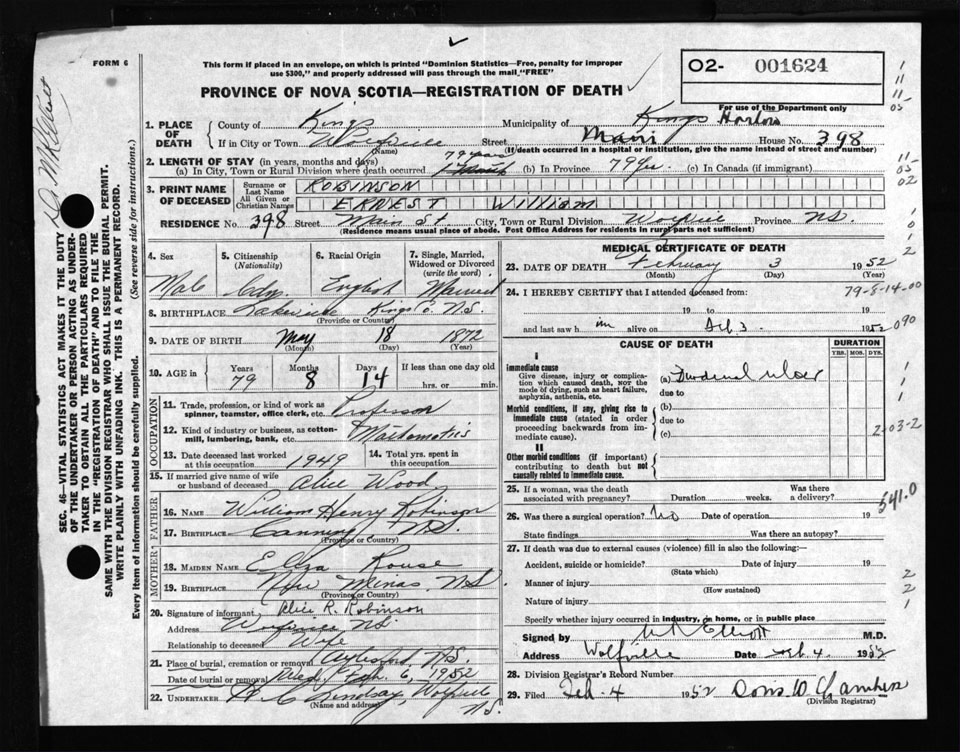 FORM 6
This form if placed in an envelope, on which is printed "Dominion Statistics—Free, penalty for improper
use $300," and properly addressed will pass through the mail "FREE"
PROVINCE OF NOVA SCOTIA—REGISTRATION OF DEATH
O2- 001624
For use of the Department only
1. PLACE OF DEATH
County of Kings Municipality of Kings Horton
If in City or Town Wolfville (Name) Street Main House No. 398
(If death occurred in a hospital or institution, give the name instead of street and number)
2. LENGTH OF STAY (in years, months and days)
(a) In City, Town or Rural Division where death occurred 79 years (b) In Province 79 Yrs (c) In Canada (if immigrant)
3. PRINT NAME OF DECEASED
Surname or Last Name ROBINSON
All Given or Christian Names ERNEST William
RESIDENCE No. 398 Street Main St. City, Town or Rural Division Wolfville Province N.S.
(Residence means usual place of abode. Post Office Address for residents in rural parts not sufficient)
4. Sex 5. Citizenship (Nationality) 6. Racial Origin 7. Single, Married, Widowed or Divorced (write the word)
Male Cdn. English Married
8. BIRTHPLACE Lakeville Kings Co. N.S.
(Province or Country)
9. DATE OF BIRTH May 18 1872
(Month) (Day) (Year)
10. AGE in Years 79 Months 8 Days 14 If less than one day old
hrs. or min.
OCCUPATION
11. Trade, profession, or kind of work as spinner, teamster, office clerk, etc. Professor
12. Kind of industry or business, as cotton-mill, lumbering, bank, etc. Mathematics
13. Date deceased last worked at this occupation 1949 14. Total yrs. spent in this occupation
15. If married give name of wife or husband of deceased Alice Wood
FATHER
16. NAME William Henry Robinson
17. BIRTHPLACE Canning N.S.
(Province or Country)
MOTHER
18. MAIDEN NAME Eliza Rouse
19. BIRTHPLACE New Minas N.S.
(Province or Country)
20. Signature of informant Alice R. Robinson
Address Wolfville N.S.
Relationship to deceased Wife
21. Place of burial, cremation or removal Aylesford, N.S.
Date of burial or removal Wed. Feb. 6, 1952
22. UNDERTAKER H C Lindsay, Wolfville N.S.
(Name and address)
MEDICAL CERTIFICATE OF DEATH
23. DATE OF DEATH February 3 1952
(Month) (Day) (Year)
24. I HEREBY CERTIFY that I attended deceased from:
19 to 19
and last saw him alive on Feb 3 1952
CAUSE OF DEATH DURATION
YRS. MOS. DYS.
I
Immediate cause
Give disease, injury or complication which caused death, not the mode of dying, such as heart failure, asphyxia, asthenia, etc.
(a) Duodenal ulcer
due to
Morbid conditions, if any, giving rise to immediate cause (stated in order proceeding backwards from immediate cause).
(b)
due to
(c)
II
Other morbid conditions (if important) contributing to death but not causally related to immediate cause.
25. If a woman, was the death associated with pregnancy? Duration weeks. Was there a delivery?
26. Was there a surgical operation? No Date of operation 19
State findings Was there an autopsy?
27. If death was due to external causes (violence) fill in also the following:—
Accident, suicide or homicide? Date of injury 19
(State which)
Manner of injury
(How sustained)
Nature of injury
Specify whether injury occurred in industry, in home, or in public place
Signed by M.D.
Elliott
Address Wolfville Date Feb 4 1952
28. Division Registrar's Record Number
29. Filed Feb. 4 1952 Doris W Chambers
(Division Registrar)
79-8-14-00
090
2-03-2
541.0
SEC. 46—VITAL STATISTICS ACT MAKES IT THE DUTY
OF THE UNDERTAKER OR PERSON ACTING AS UNDER-
TAKER TO OBTAIN ALL THE PARTICULARS REQUIRED
IN THE "REGISTRATION OF DEATH" AND TO FILE THE
SAME WITH THE DIVISION REGISTRAR WHO SHALL ISSUE THE BURIAL PERMIT.
WRITE PLAINLY WITH UNFADING INK. THIS IS A PERMANENT RECORD.
Every item of information should be carefully supplied. (See reverse side for instructions.)